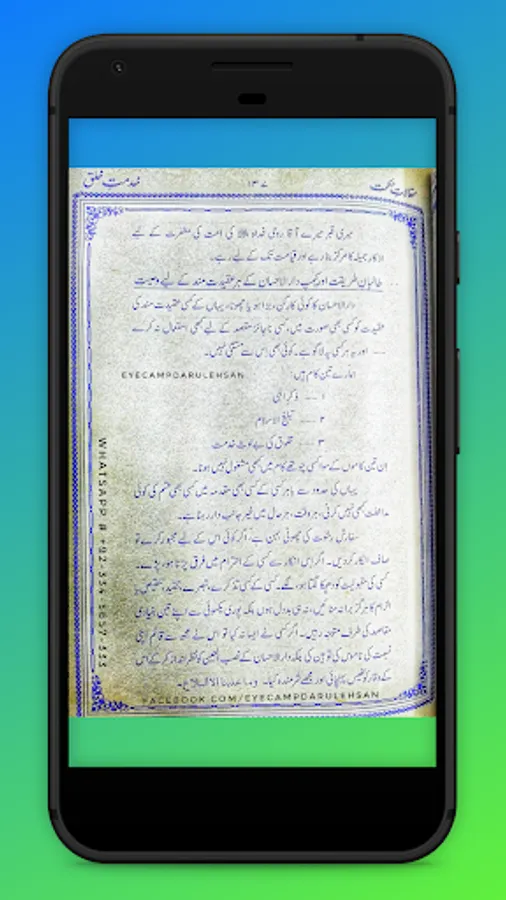 مقالاتِ حکمت ۱۳۰۷ خدمتِ خلق
میری قبر میرے آقا روحی فداہ ﷺ کی امت کی مغفرت کے لیے
اذکارِ جمیلہ کا مرکز بنا رہے اور قیامت تک کے لیے رہے۔
طالبانِ طریقت اور کیمپ دارالاحسان کے ہر عقیدت مند کے لیے وصیت
دارالاحسان کا کوئی کارکن، بڑا ہو یا چھوٹا، یہاں کے کسی عقیدت مند کی
عقیدت کو کسی بھی صورت میں، کسی ناجائز مقصد کے لیے کبھی استعمال نہ کرے
--- اور یہ ہر کسی پہ لاگو ہے۔ کوئی بھی اس سے مستثنیٰ نہیں۔
ہمارے تین کام ہیں:
EYECAMPDARULEHSAN
۱ --- ذکرِ الٰہی
۲ --- تبلیغ الاسلام
۳ --- مخلوق کی بے لوث خدمت
ان تین کاموں کے ماسوا کسی چوتھے کام میں کبھی مشغول نہیں ہونا۔
یہاں کی حدود سے باہر کسی کے کسی بھی مقدمہ میں کسی بھی قسم کی کوئی
مداخلت کبھی نہیں کرنی، ہر وقت، ہر حال میں غیر جانب دار رہنا ہے۔
سفارش رشوت کی چھوٹی بہن ہے، اگر کوئی اس کے لیے مجبور کرے تو
صاف انکار کر دیں۔ اگر اس انکار سے کسی کے احترام میں فرق پڑتا ہو، پڑے۔
کسی کی مقبولیت کو دھچکا لگتا ہو، لگے۔ کسی کے کسی تذکرے، تبصرے، تنقید، تنقیص یا
الزام کا ہرگز برا نہ منائیں، نہ ہی بددل ہوں بلکہ پوری یکسوئی سے اپنے تین بنیادی
مقاصد کی طرف متوجہ رہیں۔ اگر کسی نے ایسا نہ کیا تو اس نے مجھ سے قائم اپنی
نسبت کی ناموس کی توہین کی بلکہ دارالاحسان کے نصب العین کو نظر انداز کر کے اس
کے وقار کو ٹھیس پہنچائی اور مجھے شرمندہ کیا۔ وما علینا الا البلاغ۔
WHATSAPP # +92 334 5657 333
FACEBOOK.COM/EYECAMPDARULEHSAN